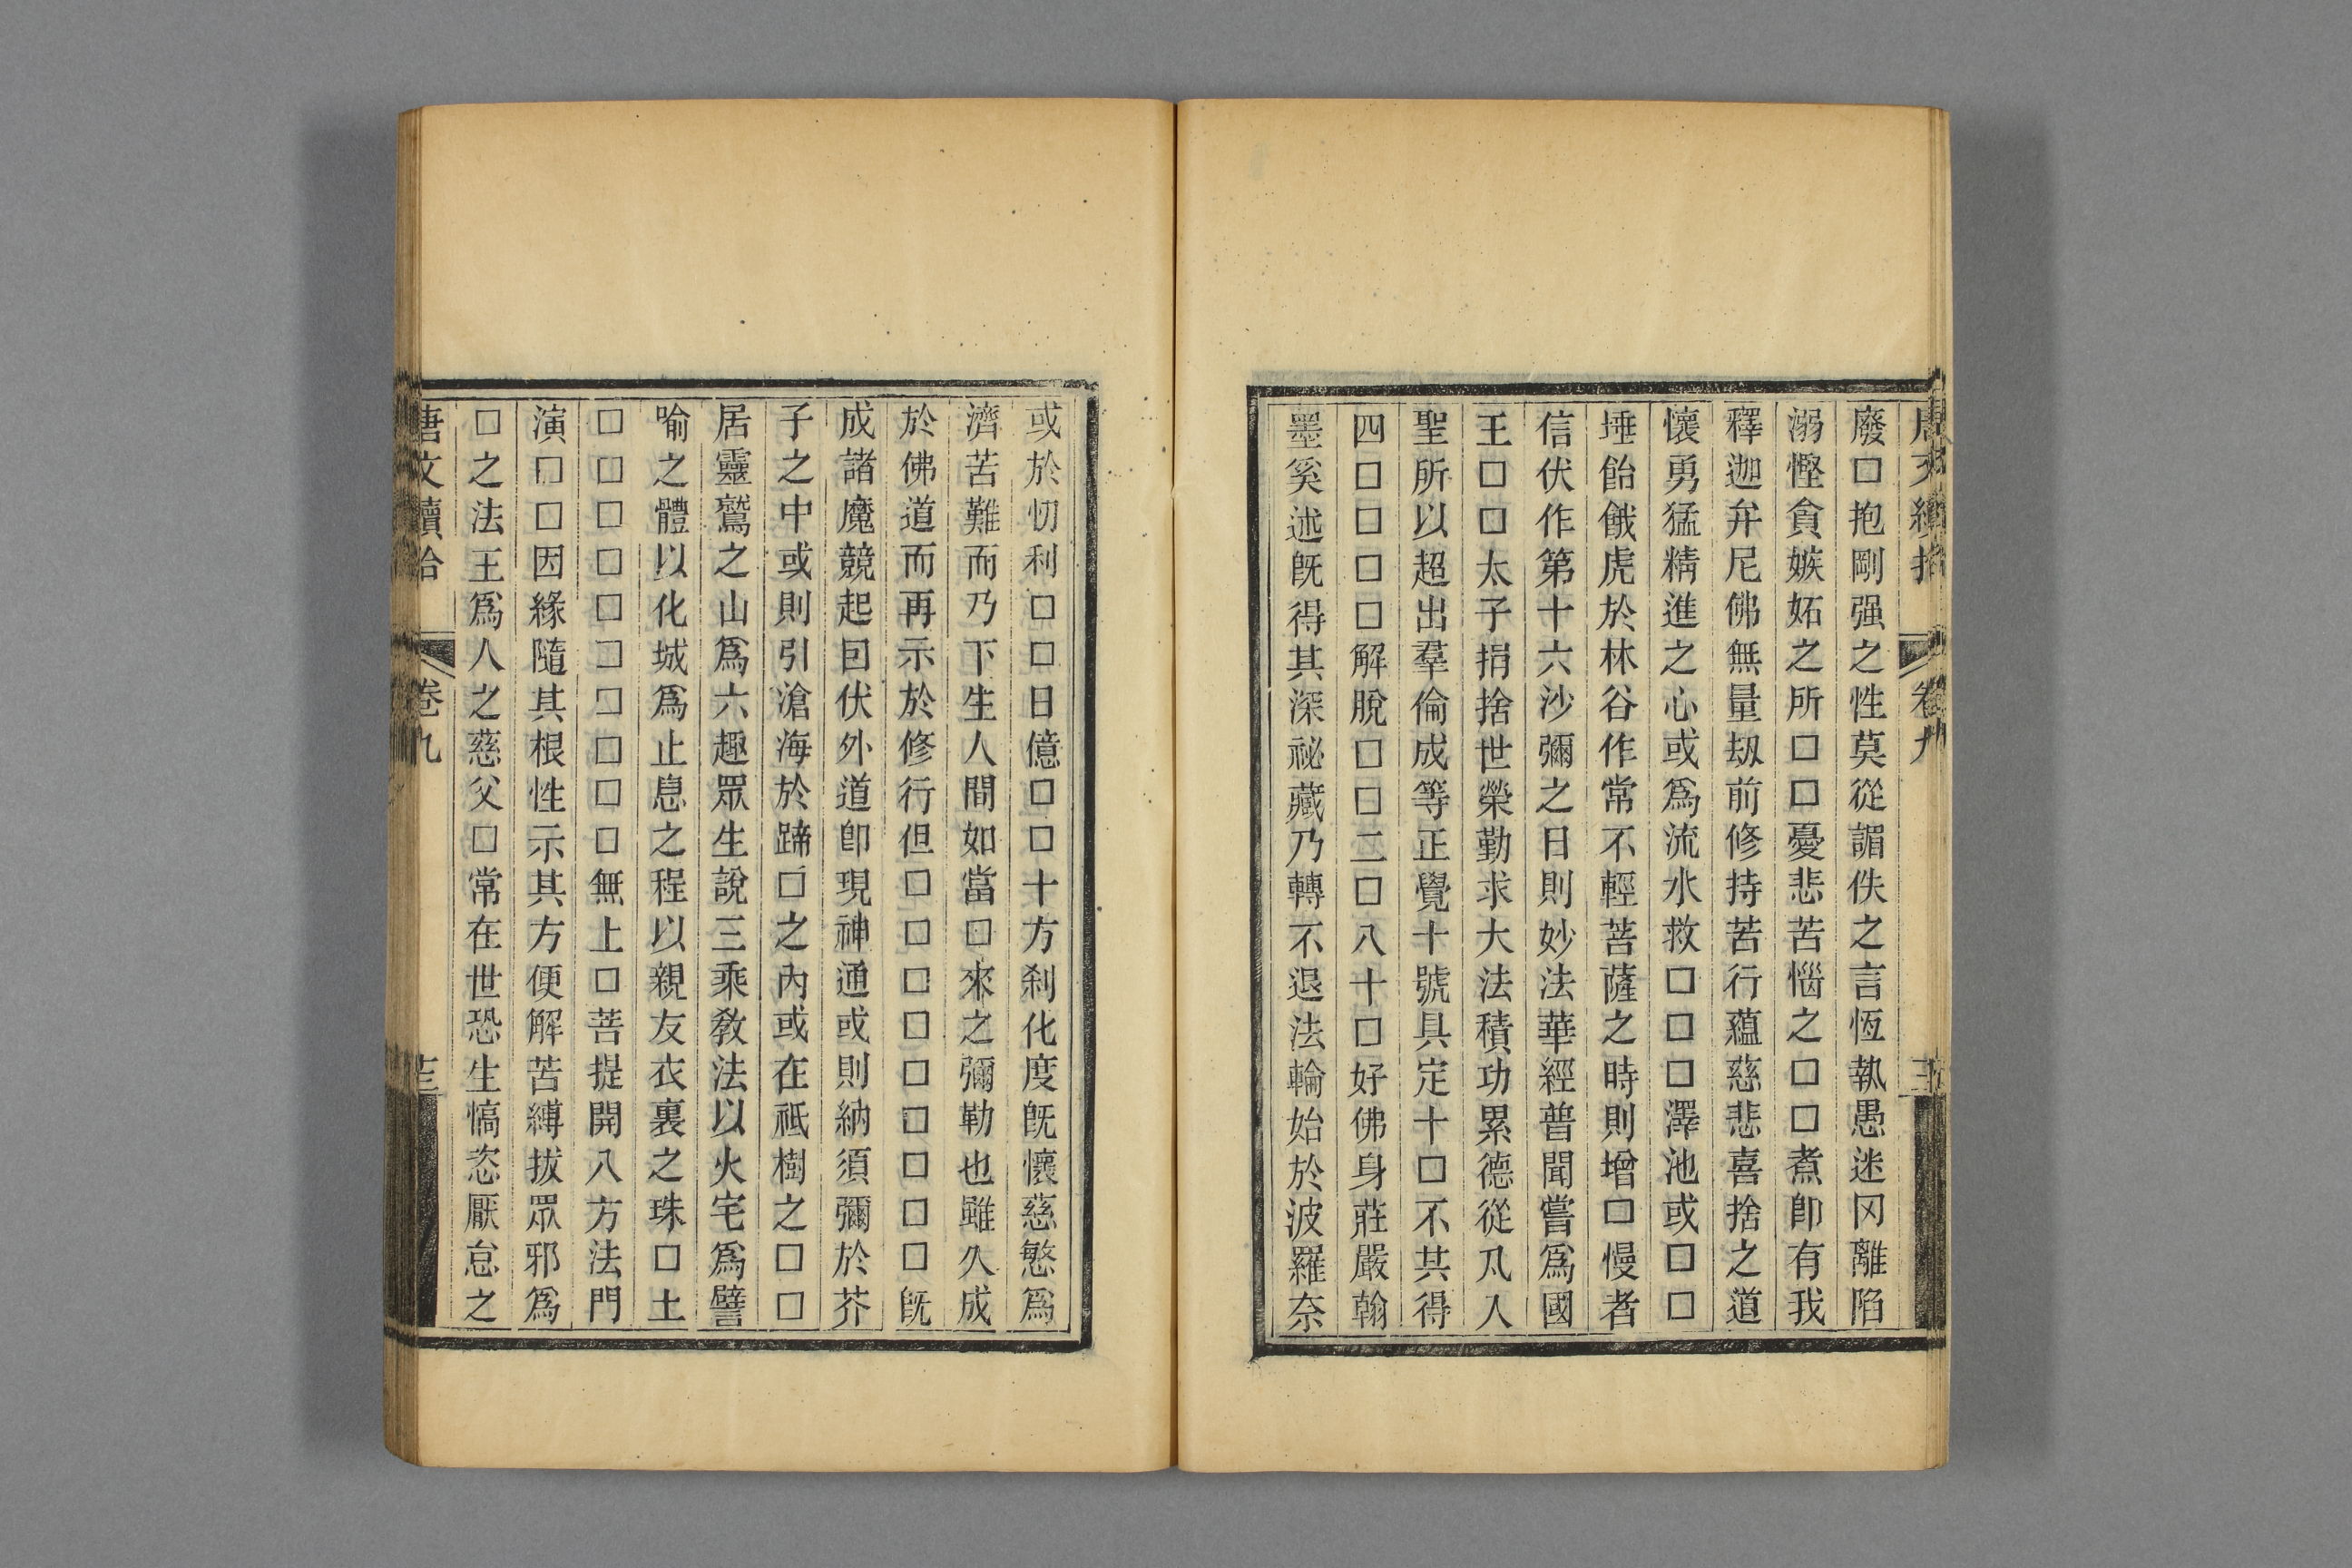 唐文續拾 卷九
廢□抱剛强之性莫從謟佚之言恆執愚迷罔離陷
溺慳貪嫉妬之所□□憂悲苦惱之□□煮卽有我
釋迦弁尼佛無量刼前修持苦行蘊慈悲喜捨之道
懷勇猛精進之心或爲流水救□□□澤池或□□
埵飴餓虎於林谷作常不輕菩薩之時則增□慢者
信伏作第十六沙彌之日則妙法華經普聞嘗爲國
王□□太子捐捨世榮勤求大法積功累德從凡人
聖所以超出羣倫成等正覺十號具定十□不其得
四□□□□解脫□□二□八十□好佛身莊嚴翰
墨奚述旣得其深祕藏乃轉不退法輪始於波羅奈
或於忉利□□日億□□十方刹化度旣懷慈慜爲
濟苦難而乃下生人間如當□來之彌勒也雖久成
於佛道而再示於修行但□□□□□□□□□旣
成諸魔競起囙伏外道卽現神通或則納須彌於芥
子之中或則引滄海於蹄□之內或在祇樹之□□
居靈鷲之山爲六趣眾生說三乘敎法以火宅爲譬
喻之體以化城爲止息之程以親友衣裏之珠□土
□□□□□□□□□□無上□菩提開八方法門
演□□因緣隨其根性示其方便解苦縛拔眾邪爲
□之法王爲人之慈父□常在世恐生憍恣厭怠之
唐文續拾 卷九